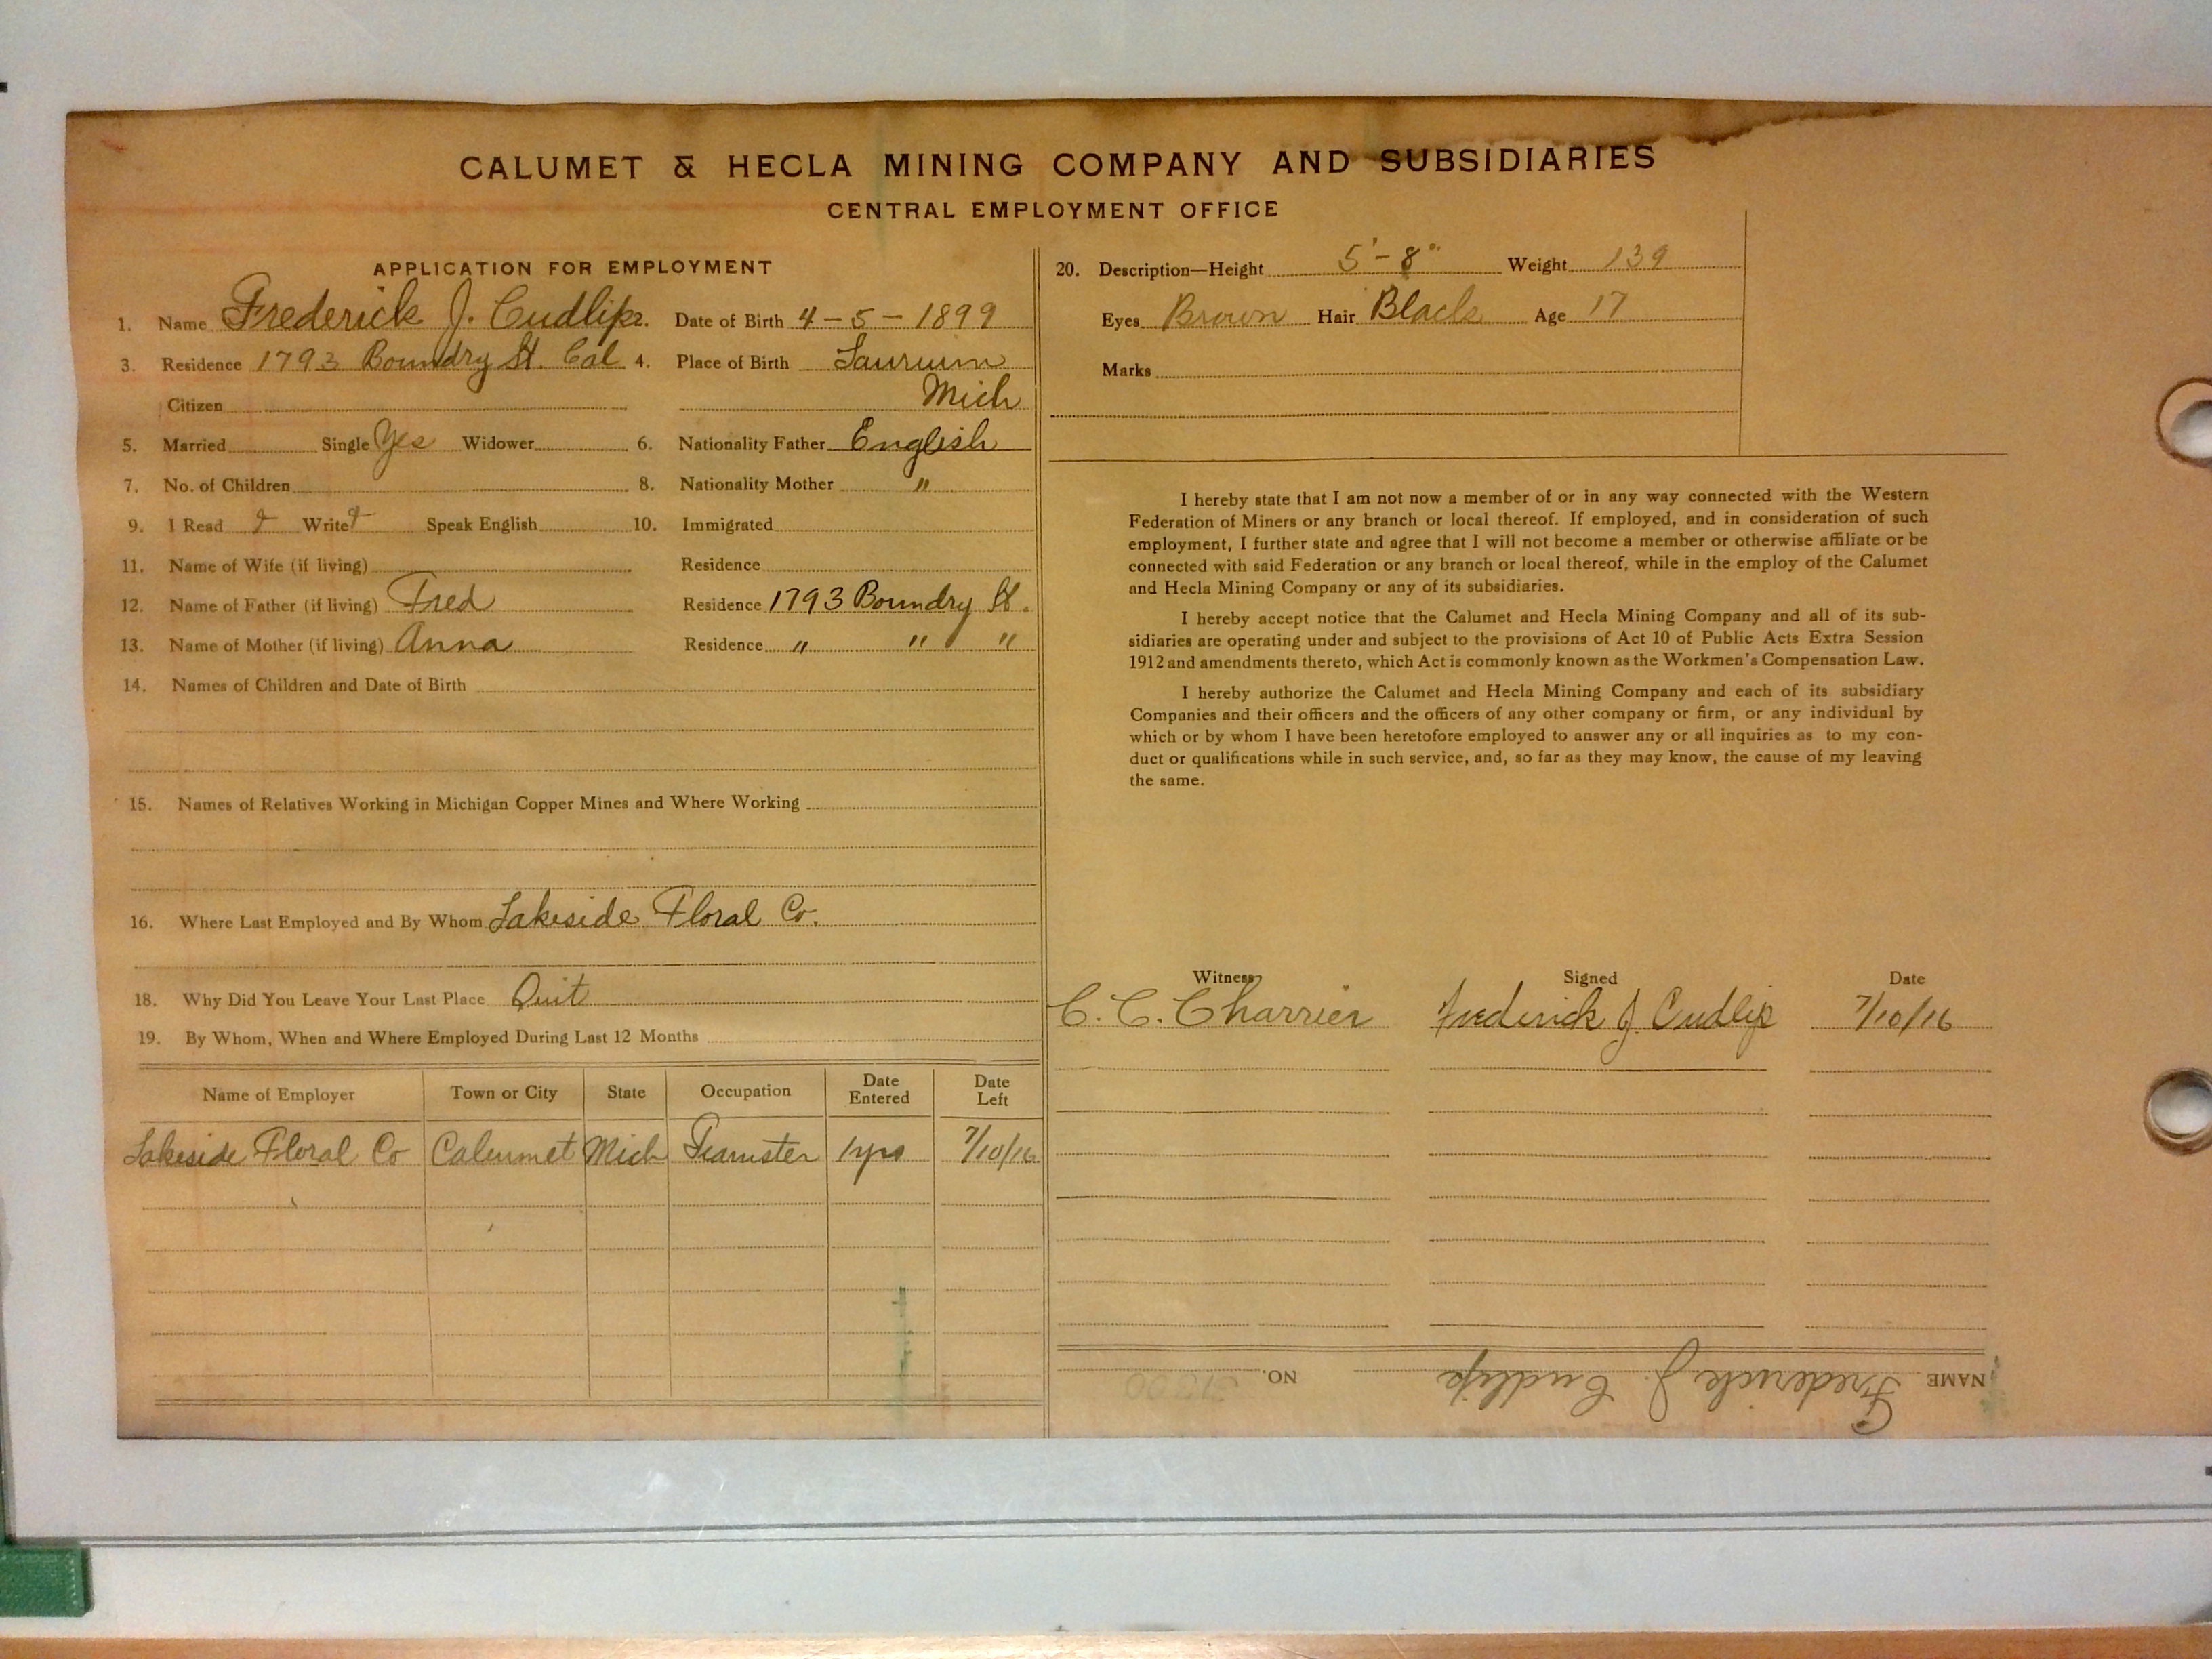 CALUMET & HECLA MINING COMPANY AND SUBSIDIARIES
CENTRAL EMPLOYMENT OFFICE
APPLICATION FOR EMPLOYMENT
1. Name Frederick J. Cudlip 2. Date of Birth 4-5-1899
3. Residence 1793 Boundry St. Cal 4. Place of Birth Laurium
Citizen Mich
5. Married Single Yes Widower 6. Nationality Father English
7. No. of Children 8. Nationality Mother "
9. I Read Write Speak English 10. Immigrated
11. Name of Wife (if living) Residence
12. Name of Father (if living) Fred Residence 1793 Boundry St.
13. Name of Mother (if living) Anna Residence " " "
14. Names of Children and Date of Birth
15. Names of Relatives Working in Michigan Copper Mines and Where Working
16. Where Last Employed and By Whom Lakeside Floral Co.
18. Why Did You Leave Your Last Place Quit
19. By Whom, When and Where Employed During Last 12 Months
Name of Employer Town or City State Occupation Date Entered Date Left
Lakeside Floral Co Calumet Mich Teamster 1 yrs 7/10/16
20. Description—Height 5'-8" Weight 139
Eyes Brown Hair Black Age 17
Marks
I hereby state that I am not now a member of or in any way connected with the Western
Federation of Miners or any branch or local thereof. If employed, and in consideration of such
employment, I further state and agree that I will not become a member or otherwise affiliate or be
connected with said Federation or any branch or local thereof, while in the employ of the Calumet
and Hecla Mining Company or any of its subsidiaries.
I hereby accept notice that the Calumet and Hecla Mining Company and all of its sub-
sidiaries are operating under and subject to the provisions of Act 10 of Public Acts Extra Session
1912 and amendments thereto, which Act is commonly known as the Workmen's Compensation Law.
I hereby authorize the Calumet and Hecla Mining Company and each of its subsidiary
Companies and their officers and the officers of any other company or firm, or any individual by
which or by whom I have been heretofore employed to answer any or all inquiries as to my con-
duct or qualifications while in such service, and, so far as they may know, the cause of my leaving
the same.
Witness Signed Date
C. C. Charrier Frederick J. Cudlip 7/10/16
NAME Frederick J. Cudlip NO.